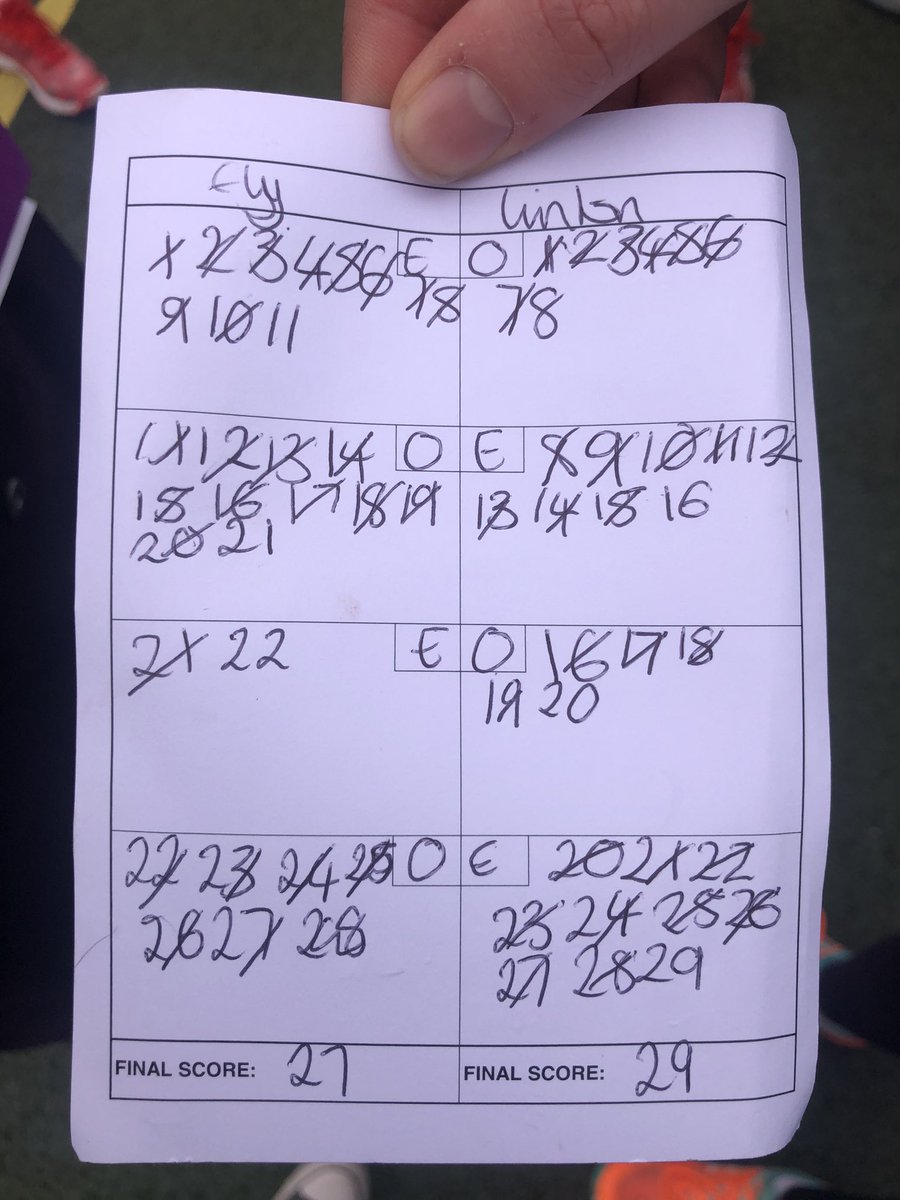 Ely
Linton
1 2 3 4 5 6 E
7 8
9 10 11
O 1 2 3 4 5 6
7 8
11 12 13 14 O
15 16 17 18 19
20 21
E 8 9 10 11 12
13 14 15 16
21 22 E
O 16 17 18
19 20
22 23 24 25 O
26 27 28
E 20 21 22
23 24 25 26
27 28 29
FINAL SCORE: 27
FINAL SCORE: 29